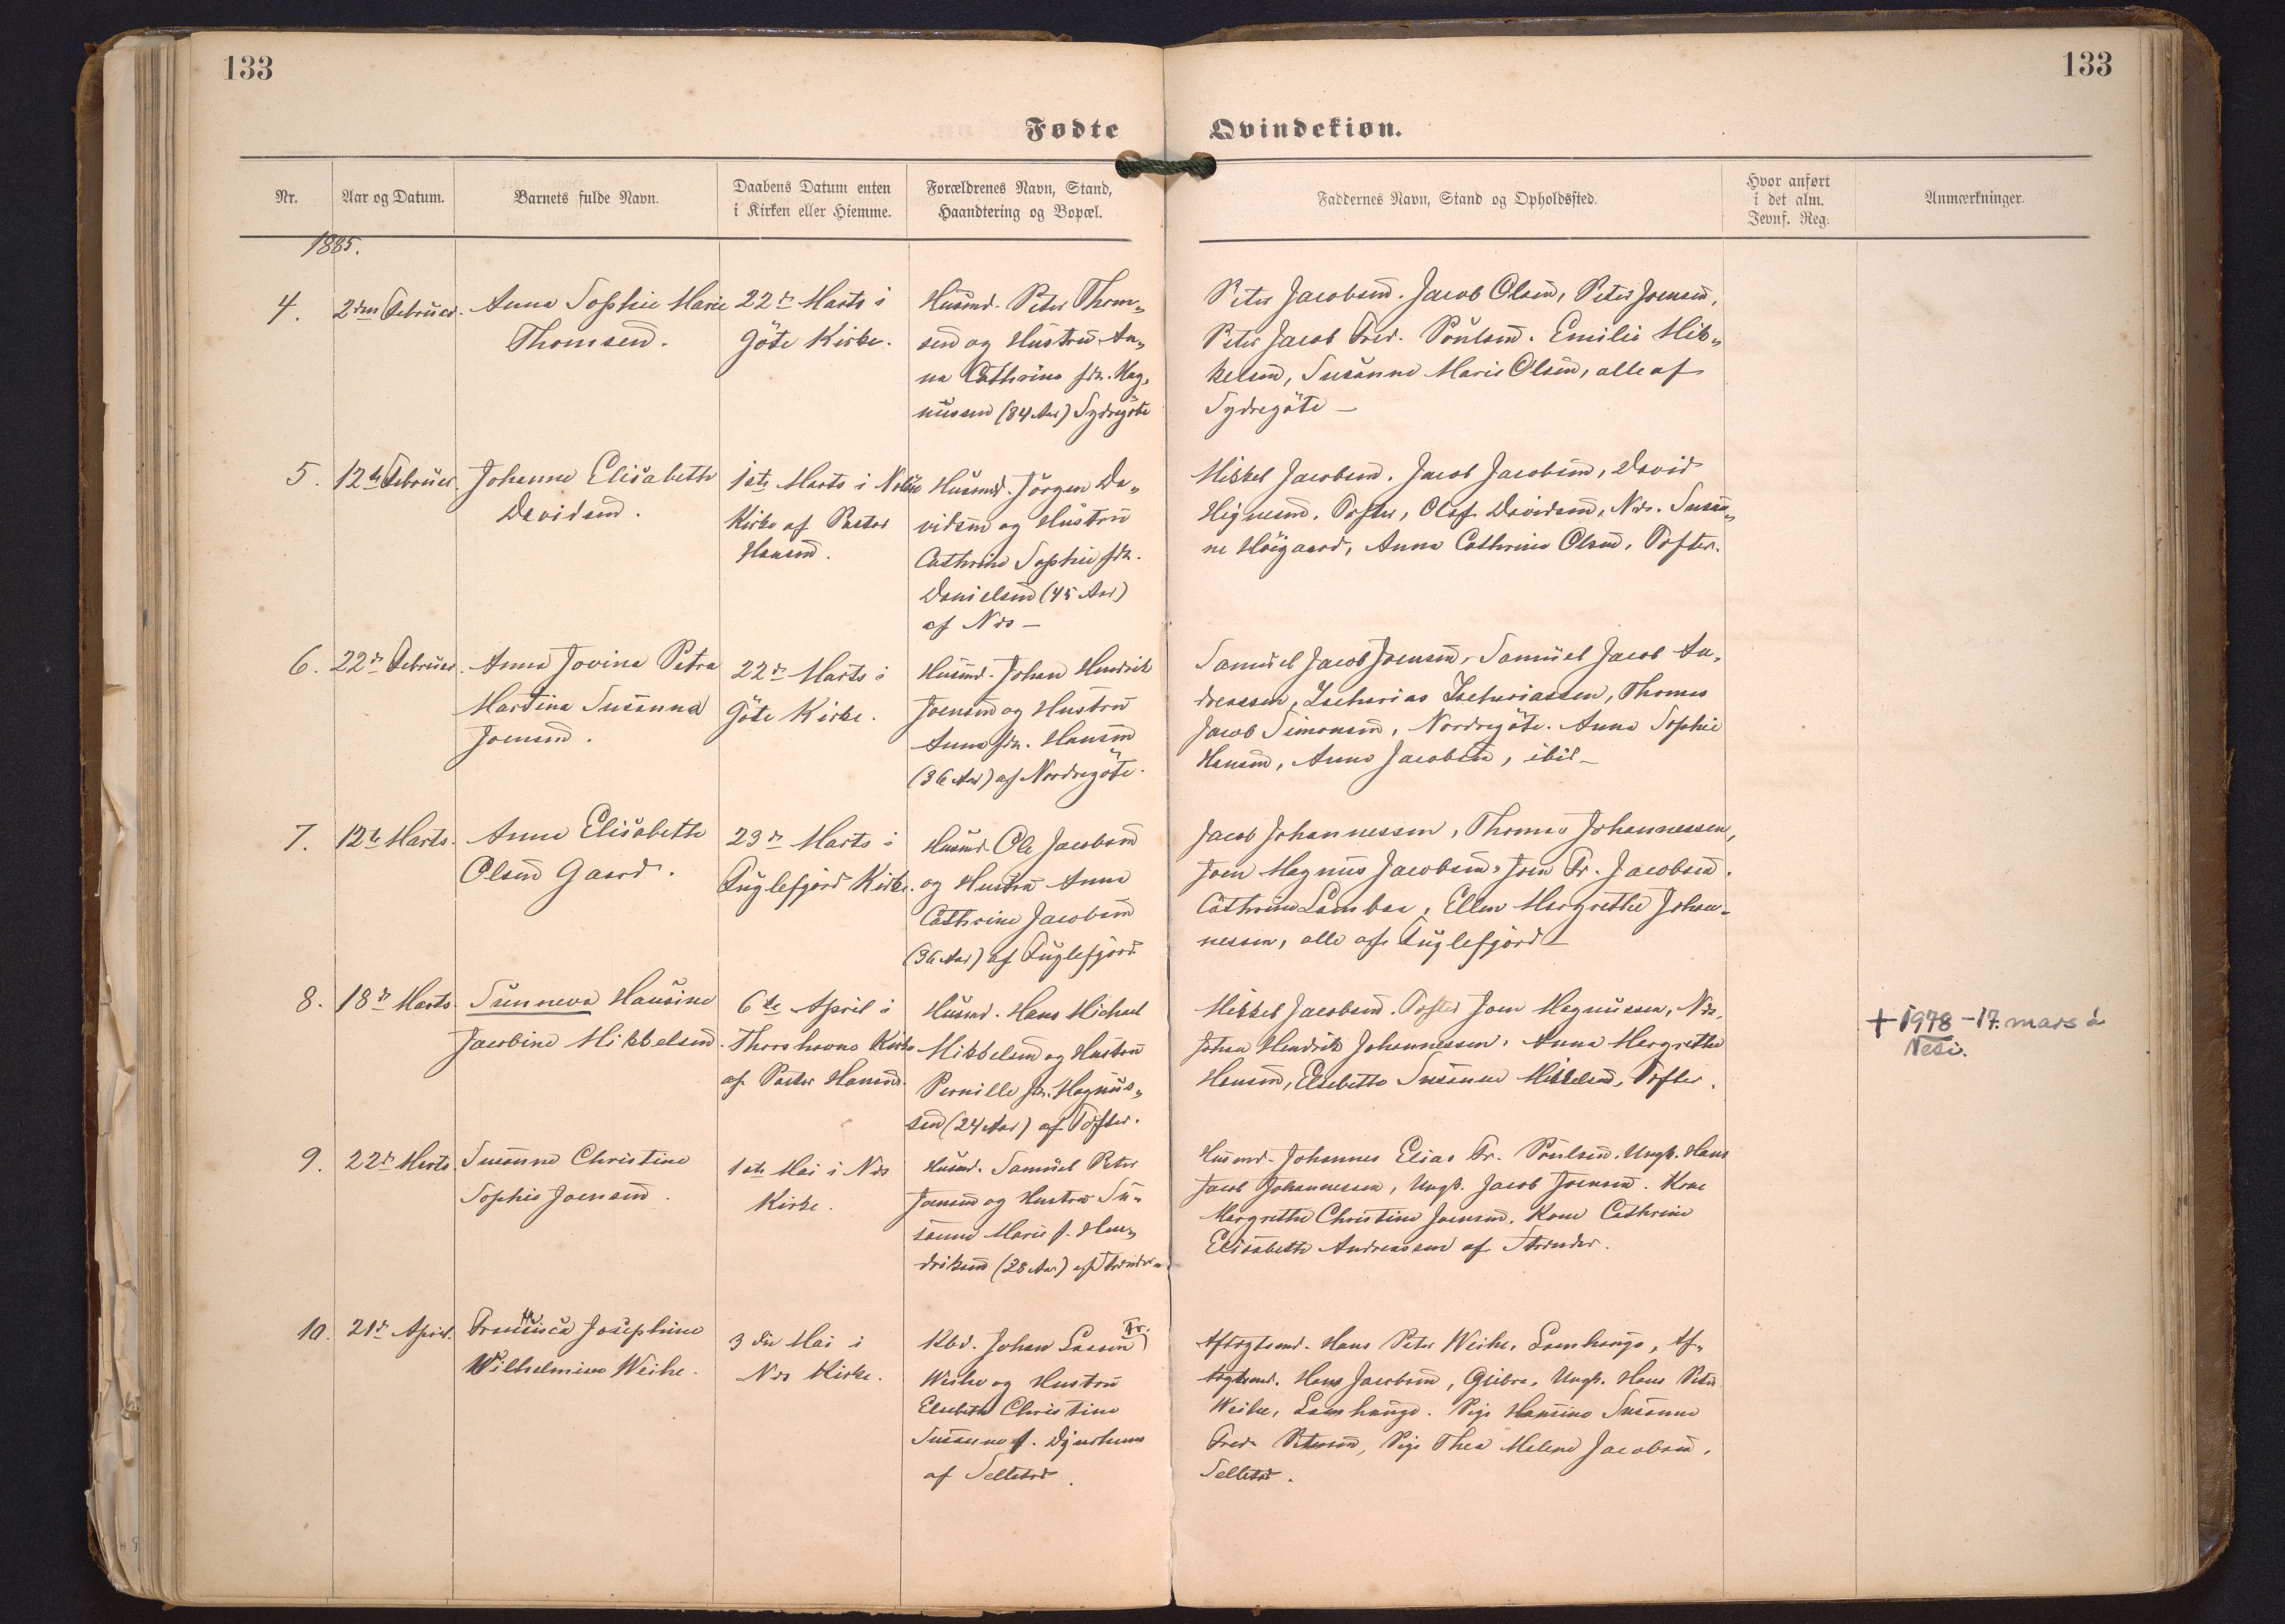 133
133
Fødte
Qvindekiøn.
Nr.
Aar og Datum.
Barnets fulde Navn.
Daabens Datum enten
i Kirken eller Hiemme.
Forældrenes Navn, Stand,
Haandtering og Bopæl.
Faddernes Navn, Stand og Opholdssted.
Hvor anført
i det alm.
Jevnf. Reg.
Anmærkninger.
1885.
4.
2den Februar.
Anna Sophie Marie
Thomsen.
22de Marts i
Göte Kirke.
Husmd. Peter Thom„
sen og Hustru An„
na Cathrina fdt. Mag„
nussen (34 Aar) Sydregöte
Peter Jacobsen. Jacob Olsen, Peter Joensen,
Peter Jacob Fred. Poulsen. Emilie Mik„
kelsen, Susanne Marie Olsen, alle af
Sydregöte —
5.
12te Februar.
Johanne Elisabeth
Davidsen.
1ste Marts i
Kirke af Pastor
Hansen.
Husmd. Jörgen Da„
vidsen og Hustru
Cathrine Sophie fdt.
Danielsen (45 Aar)
af Næs —
Mikkel Jacobsen. Jacob Jacobsen, David
Hignesen, Tofter, Olaf Davidsen, Næs. Susan„
ne Höigaard, Anna Cathrine Olsen, Tofter.
6.
22de Februar.
Anna Jovina Petra
Martina Susanna
Joensen.
22de Marts i
Göte Kirke.
Husmd. Johan Hendrik
Joensen og Hustru
Anna fdt. Hansen
(36 Aar) af Nordregöte.
Samuel Jacob Joensen, Samuel Jacob An„
dreassen, Zacharias Zachariassen, Thomas
Jacob Simonsen, Nordregöte. Anna Sophie
Hansen, Anna Jacobsen, ibid —
7.
12te Marts.
Anna Elisabeth
Olsen Gaard.
23de Marts i
Fuglefjord Kirke.
Husmd. Ole Jacobsen
og Hustru Anna
Cathrine Jacobsen
(36 Aar) af Fuglefjord
Jacob Johannessen, Thomas Johannessen,
Joen Magnus Jacobsen, Joen Fr. Jacobsen.
Cathrine Lambaa, Ellen Margrethe Johan„
nessen, alle af Fuglefjord —
8.
18de Marts.
Sunneva Hansine
Jacobine Mikkelsen.
6te April i
Thorshavns Kirke
af Pastor Hansen.
Husmd. Hans Michael
Mikkelsen og Hustru
Pernille fdt. Magnus„
sen (24 Aar) af Tofter.
Mikkel Jacobsen. Tofter Joen Magnussen, Næs.
Johan Hendrik Johannessen. Anna Margrethe
Hansen, Elsebeth Susanne Mikkelsen, Tofter.
+ 1978 - 17. mars á
Nesi.
9.
22de Marts.
Susanne Christine
Sophie Joensen.
1ste Mai i Næs
Kirke.
Husmd. Samuel Peter
Joensen og Hustru Su„
sanne Marie f. Hen„
driksen (28 Aar) af Strænder
Husmd. Johannes Elias Fr. Poulsen. Ungk. Hans
Jacob Johannessen, Ungk. Jacob Joensen. Kone
Margrethe Christine Joensen. Kone Cathrine
Elisabeth Andreassen af Strænder.
10.
21de April.
Francisca Josephine
Wilhelmine Weihe.
3die Mai i
Næs Kirke.
Kbd. Johan Lassen Fr.
Weihe og Hustru
Elsebeth Christine
Susanne f. Djurhuus
af Selletræ.
Aftægtsmd. Hans Peter Weihe, Lamhauge, Af„
tægtsmd. Hans Jacobsen, Glibre. Ungk. Hans Peter
Weihe, Lamhauge. Pige Hansine Susanne
Fred. Petersen, Pige Thea Malene Jacobsen.
Selletræ.